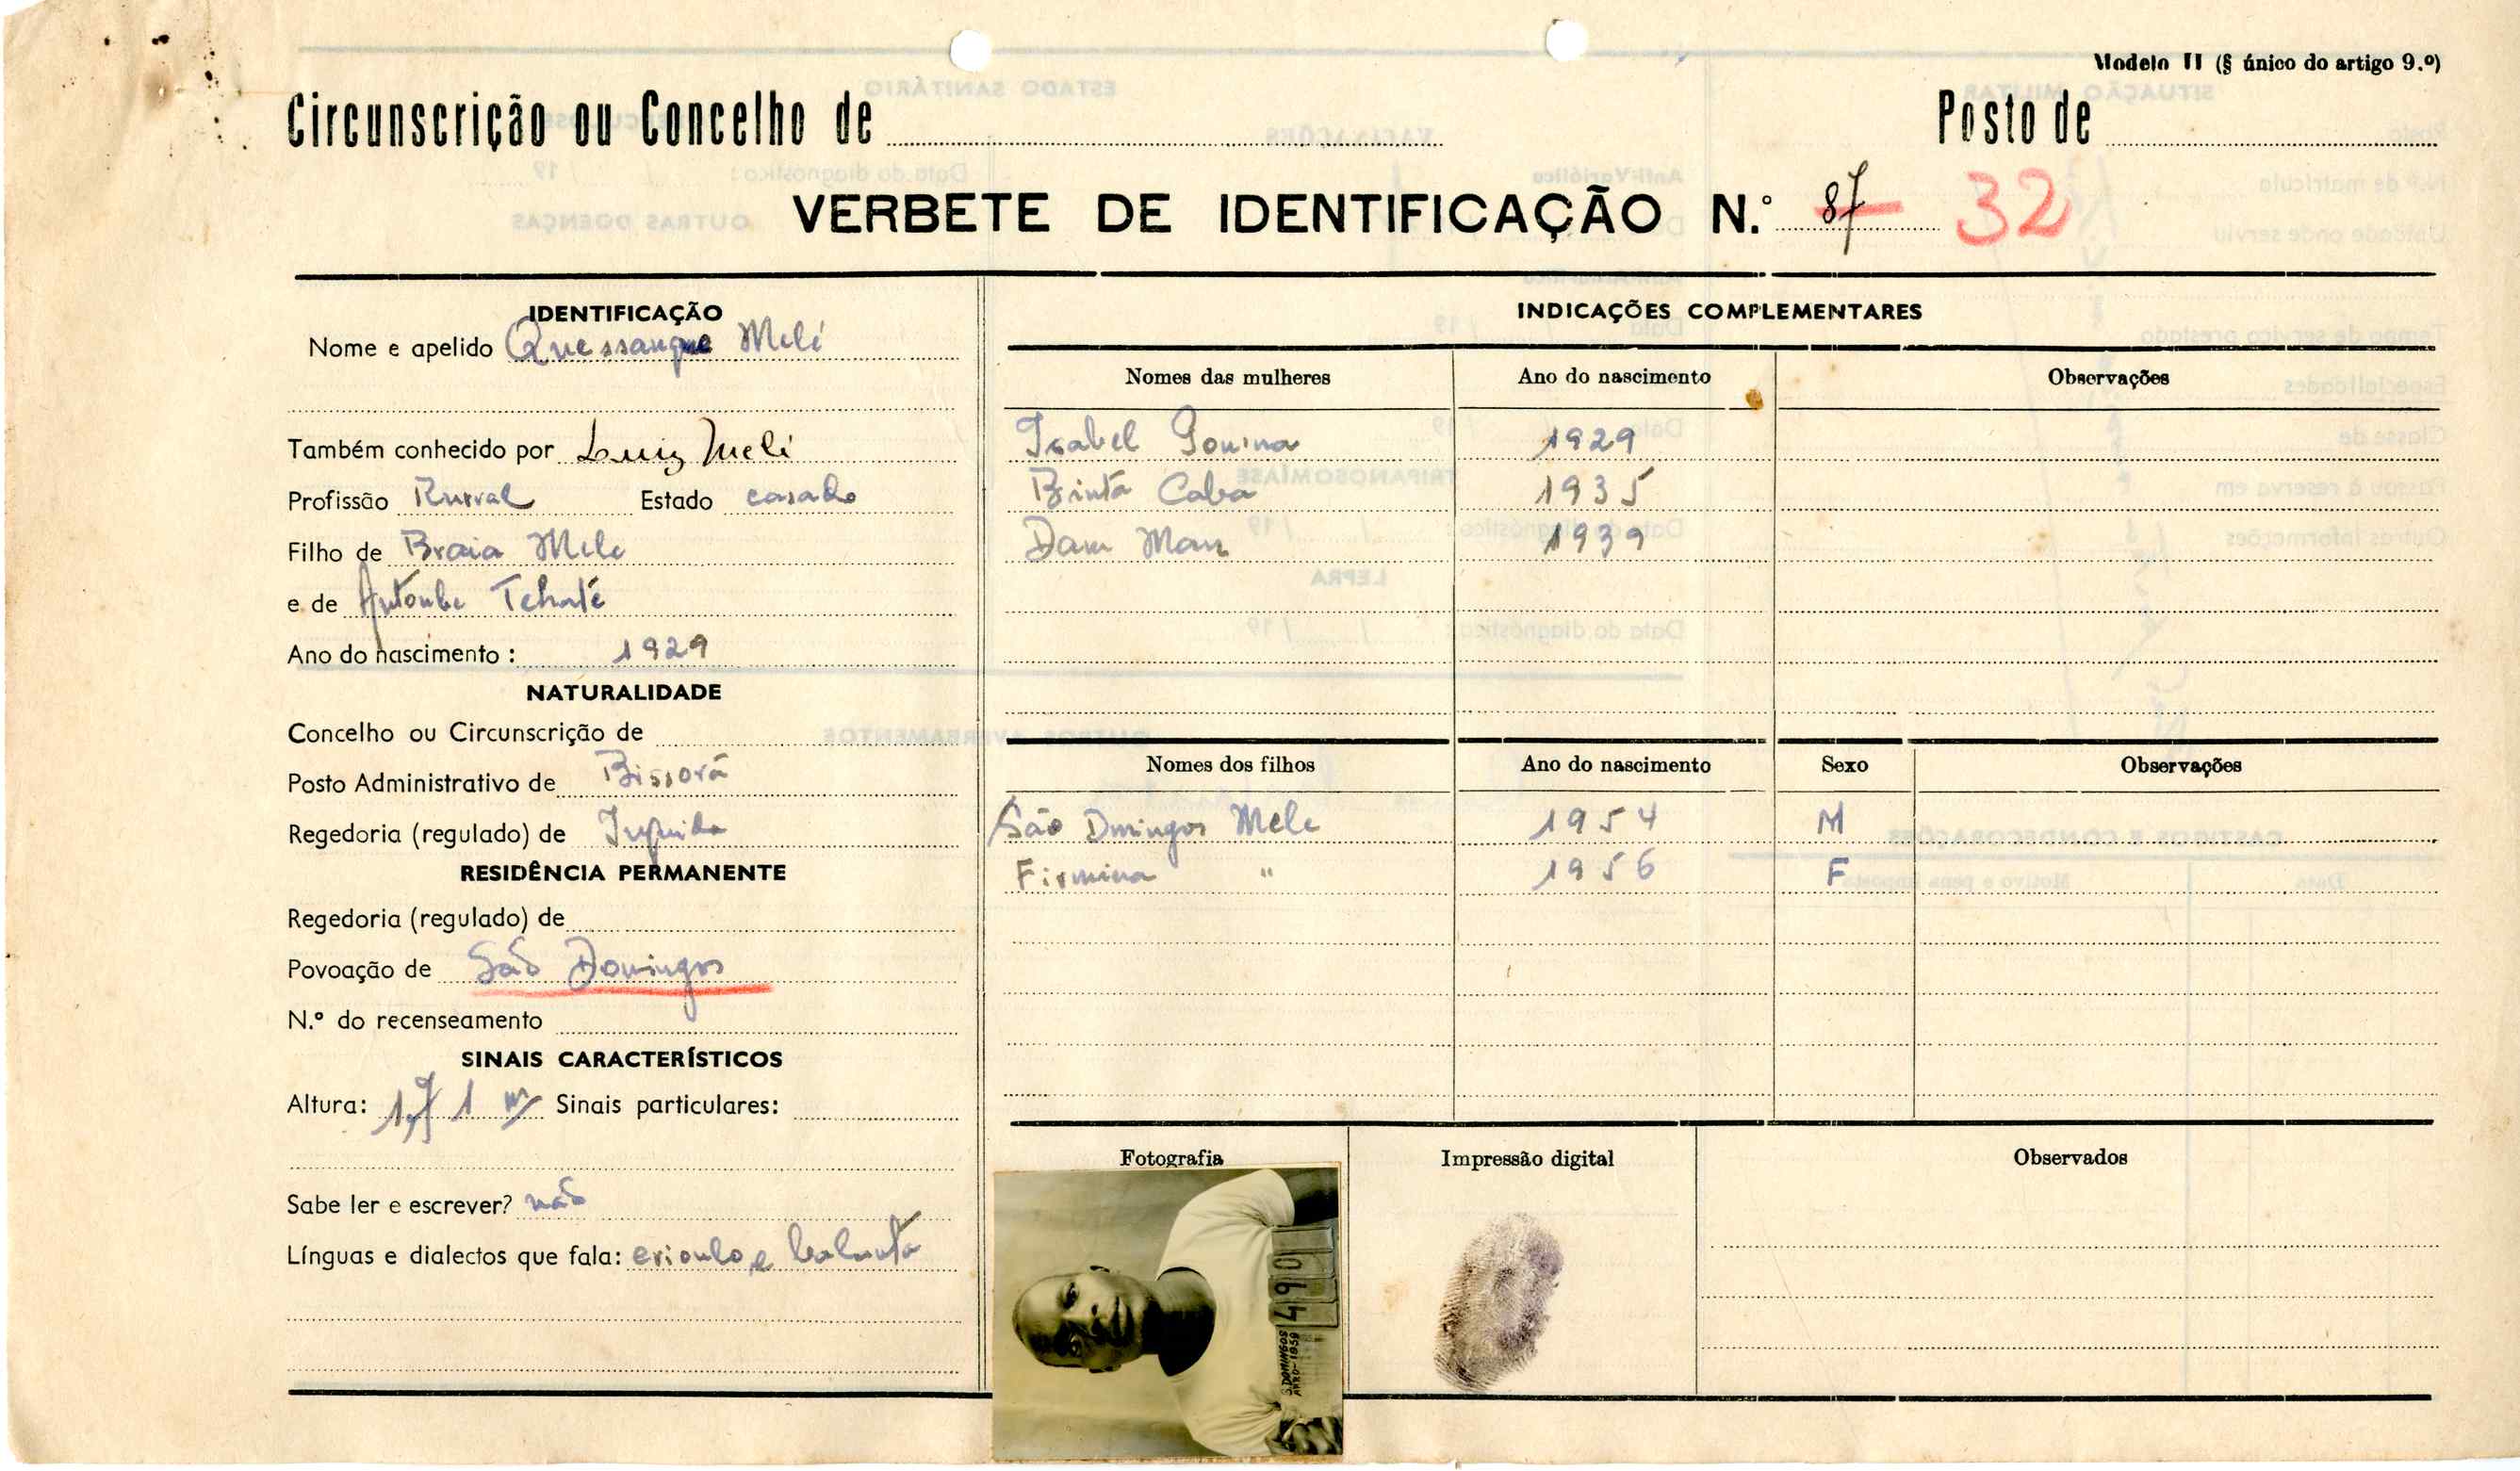 Modelo II (§ único do artigo 9.º)
Circunscrição ou Concelho de
Posto de
VERBETE DE IDENTIFICAÇÃO N.º 87 32
IDENTIFICAÇÃO
Nome e apelido Quessangue Melé
Também conhecido por Luiz Melé
Profissão Rural Estado casado
Filho de Braia Mele
e de Tchaté
Ano do nascimento : 1929
NATURALIDADE
Concelho ou Circunscrição de
Posto Administrativo de Bissorã
Regedoria (regulado) de
RESIDÊNCIA PERMANENTE
Regedoria (regulado) de
Povoação de São Domingos
N.º do recenseamento
SINAIS CARACTERÍSTICOS
Altura: 1,71 m Sinais particulares:
Sabe ler e escrever? não
Línguas e dialectos que fala: crioulo, e balanta
INDICAÇÕES COMPLEMENTARES
Nomes das mulheres Ano do nascimento Observações
Isabel Gomina 1929
Binta Caba 1935
Dam Man 1939
Nomes dos filhos Ano do nascimento Sexo Observações
São Domingos Mele 1954 M
Firmina " 1956 F
Fotografia Impressão digital Observados
S. DOMINGOS
ANRO-1959
4901